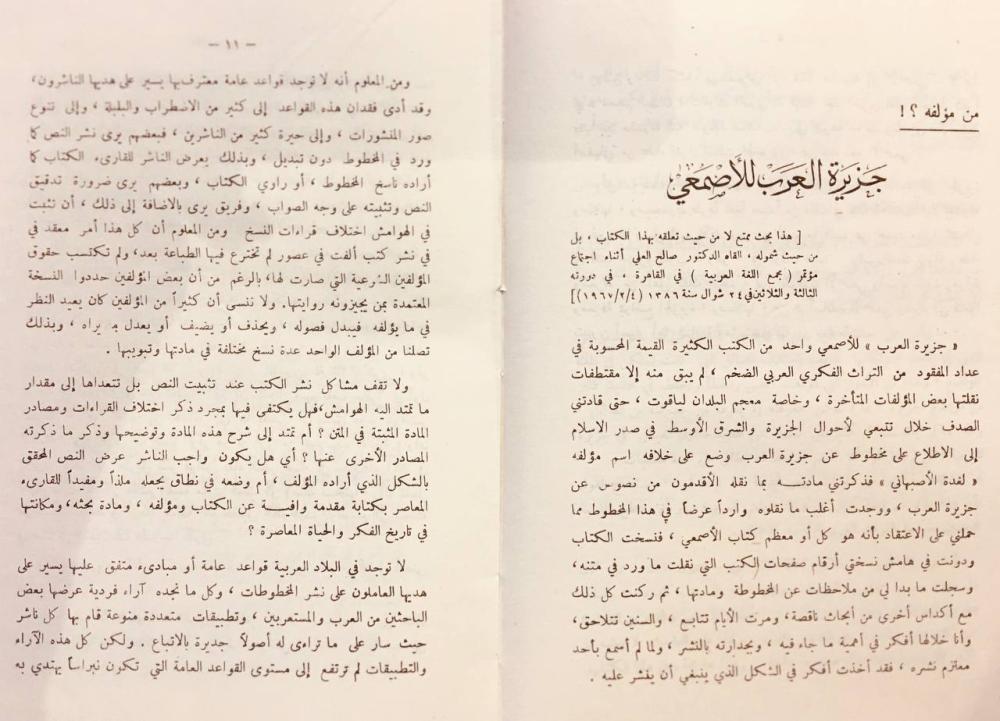 من مؤلفه ؟ !
جزيرة العرب للأصمعي
[ هذا بحث ممتع لا من حيث تعلقه بهذا الكتاب ، بل
من حيث شموله ، القاه الدكتور صالح العلي أثناء اجتماع
مؤتمر ( مجمع اللغة العربية ) في القاهرة ، في دورته
الثالثة والثلاثين في ٢٤ شوال سنة ١٣٨٦ (١٩٦٧/٢/٤)]
« جزيرة العرب » للأصمعي واحد من الكتب الكثيرة القيمة المحسوبة في
عداد المفقود من التراث الفكري العربي الضخم ، لم يبق منه إلا مقتطفات
نقلتها بعض المؤلفات المتأخرة ، وخاصة معجم البلدان لياقوت ، حتى قادتني
الصدف خلال تتبعي لأحوال الجزيرة والشرق الأوسط في صدر الاسلام
إلى الاطلاع على مخطوط عن جزيرة العرب وضع على خلافه اسم مؤلفه
« لغدة الأصبهاني » فذكرتني مادتـه بما نقله الأقدمون من نصوص عن
جزيرة العرب ، ووجدت أغلب ما نقلوه وارداً عرضاً في هذا المخطوط مما
حملني على الاعتقاد بأنه هو كل أو معظم كتاب الأصمعي ، فنسخت الكتاب
ودونت في هامش نسختي أرقام صفحات الكتب التي نقلت ما ورد في متنه ،
وسجلت ما بدا لي من ملاحظات عن المخطوطة ومادتها ، ثم ركنت كل ذلك
مع أكداس أخرى من أبحاث ناقصة، ومرت الأيام تتابع ، والسنين تتلاحق،
وأنا خلالها أفكر في أهمية ما جاء فيه ، وبجدارته بالنشر ، ولما لم أسمع بأحد
معتزم نشره ، فقد أخذت أفكر في الشكل الذي ينبغي أن ينشر عليه .
– ١١ –
ومن المعلوم أنه لا توجد قواعد عامة معترف بها يسير على هديها الناشرون،
وقد أدى فقدان هذه القواعد إلى كثير من الاضطراب والبلبلة ، وإلى تنوع
صور المنشورات ، وإلى حيرة كثير من الناشرين ، فبعضهم يرى نشر النص كما
ورد في المخطوط دون تبديل ، وبذلك يعرض الناشر للقارىء الكتاب كما
أراده ناسخ المخطوط ، أو راوي الكتاب ، وبعضهم يرى ضرورة تدقيق
النص وتثبيته على وجه الصواب ، وفريق يرى بالاضافة إلى ذلك ، أن نثبت
في الهوامش اختلاف قراءات النسخ ومن المعلوم أن كل هذا أمر معقد في
في نشر كتب ألفت في عصور لم تخترع فيها الطباعة بعد، ولم تكتسب حقوق
المؤلفين الشرعية التي صارت لها، بالرغم من أن بعض المؤلفين حددوا النسخة
المعتمدة بمن يجيزونه روايتها. ولا ننسى أن كثيراً من المؤلفين كان يعيد النظر
في ما يؤلفه فيبدل فصوله ، ويحذف أو يضيف أو يعدل بـ يراه ، وبذلك
تصلنا من المؤلف الواحد عدة نسخ مختلفة في مادتها وتبويبها .
ولا تقف مشاكل نشر الكتب عند تثبيت النص بل تتعداها إلى مقدار
ما تمتد اليه الهوامش،فهل يكتفى فيها بمجرد ذكر اختلاف القراءات ومصادر
المادة المثبتة في المتن ؟ أم تمتد إلى شرح هذه المادة وتوضيحها وذكر ما ذكرته
المصادر الأخرى عنها ؟ أي هل يكون واجب الناشر عرض النص المحقق
بالشكل الذي أراده المؤلف ، أم وضعه في نطاق يجعله ملذاً ومفيداً للقارىء
المعاصر بكتابة مقدمة وافيـة عن الكتاب ومؤلفه ، ومادة بحثه،ومكانتها
في تاريخ الفكر والحياة المعاصرة ؟
لا توجد في البلاد العربية قواعد عامة أو مبادىء متفق عليها يسير على
هديها العاملون على نشر المخطوطات ، وكل ما نجده آراء فردية عرضها بعض
الباحثين من العرب والمستعربين ، وتطبيقات متعددة منوعة قام بها كل ناشر
حيث سار على ما تراءى له أصولاً جديرة بالاتباع . ولكن كل هذه الآراء
والتطبيقات لم ترتفع إلى مستوى القواعد العامة التي تكون نبراساً يهتدي به